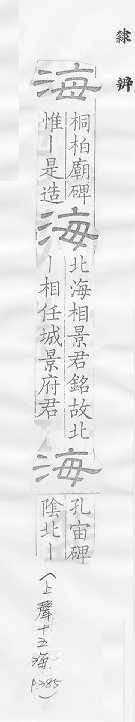 隸辨
海
桐柏廟碑
惟丨是造
海
北海相景君銘故北
丨相任城景府君
海
孔宙碑
陰北丨
(上聲十五海
P.385)